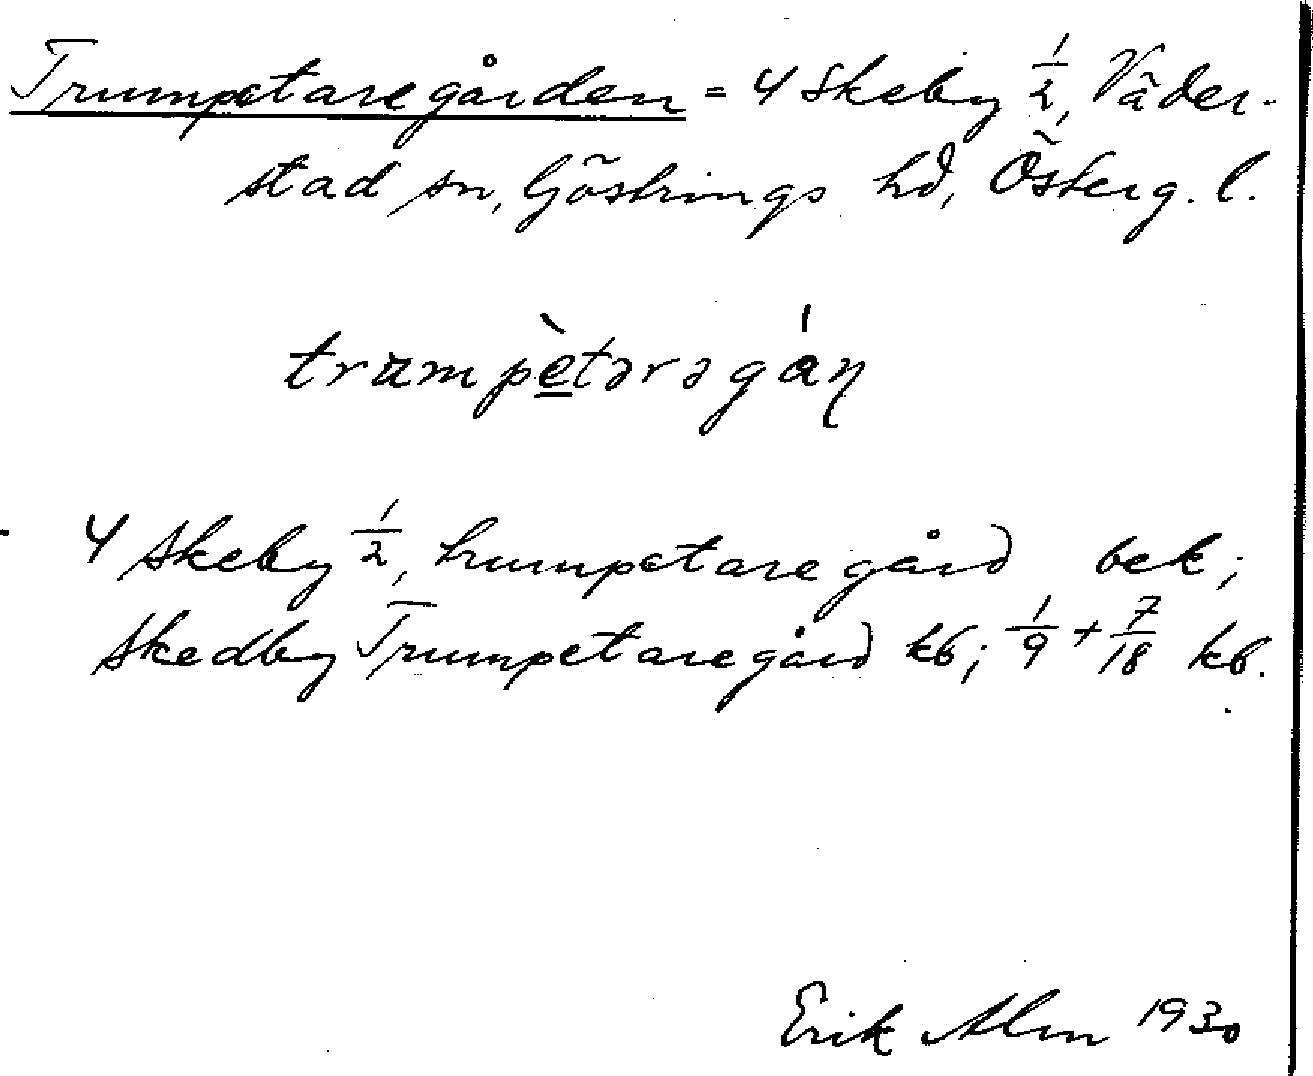 Trumpetaregården = 4 Skeby 1/2, Väder-
stad sn, Göstrings hd, Österg. l.
trumpètərəgán
4 Skeby 1/2, trumpetaregård bek;
Skedby Trumpetaregård kb; 1/9 + 7/18 kb.
Erik Alm 1930